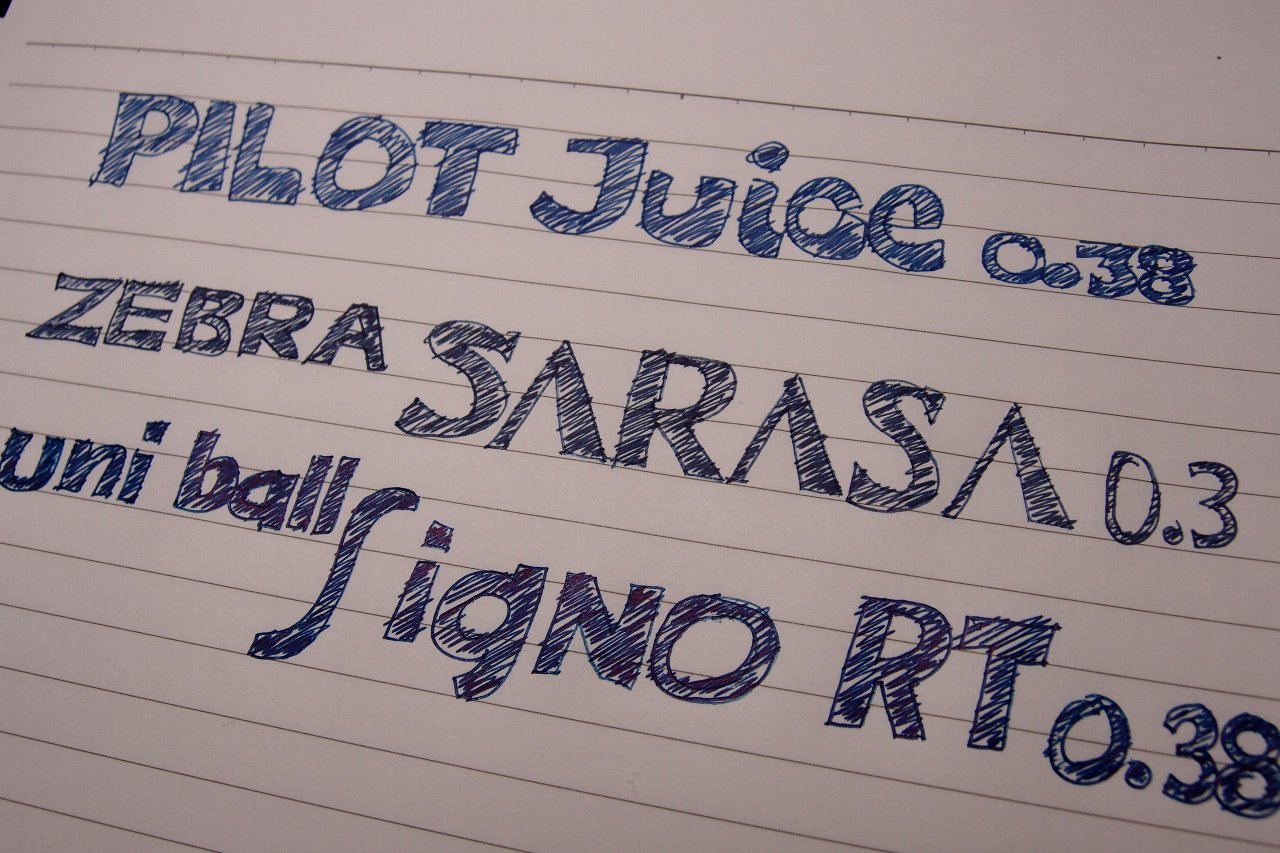 PILOT Juice 0.38
ZEBRA SARASA 0.3
uni ball Signo RT 0.38